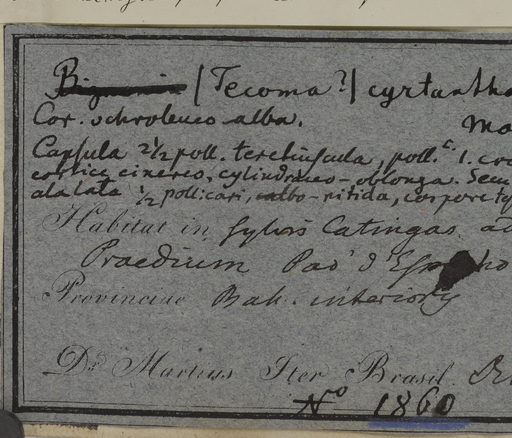 Bignonia (Tecoma?) cyrtantha
Cor. ochroleuco-alba. Ma
Capsula 2½ poll. teretiuscula, poll. c. 1. cra
cortice cinereo, cylindraceo-oblonga. Sem
ala lata ½ pollicari, albo-nitida, corpore
Habitat in sylvis Catingas ad
Praedium Pao d'Esp ho
Provinciae Bah. interioris
Dr. Martius Iter Brasil.
No 1860